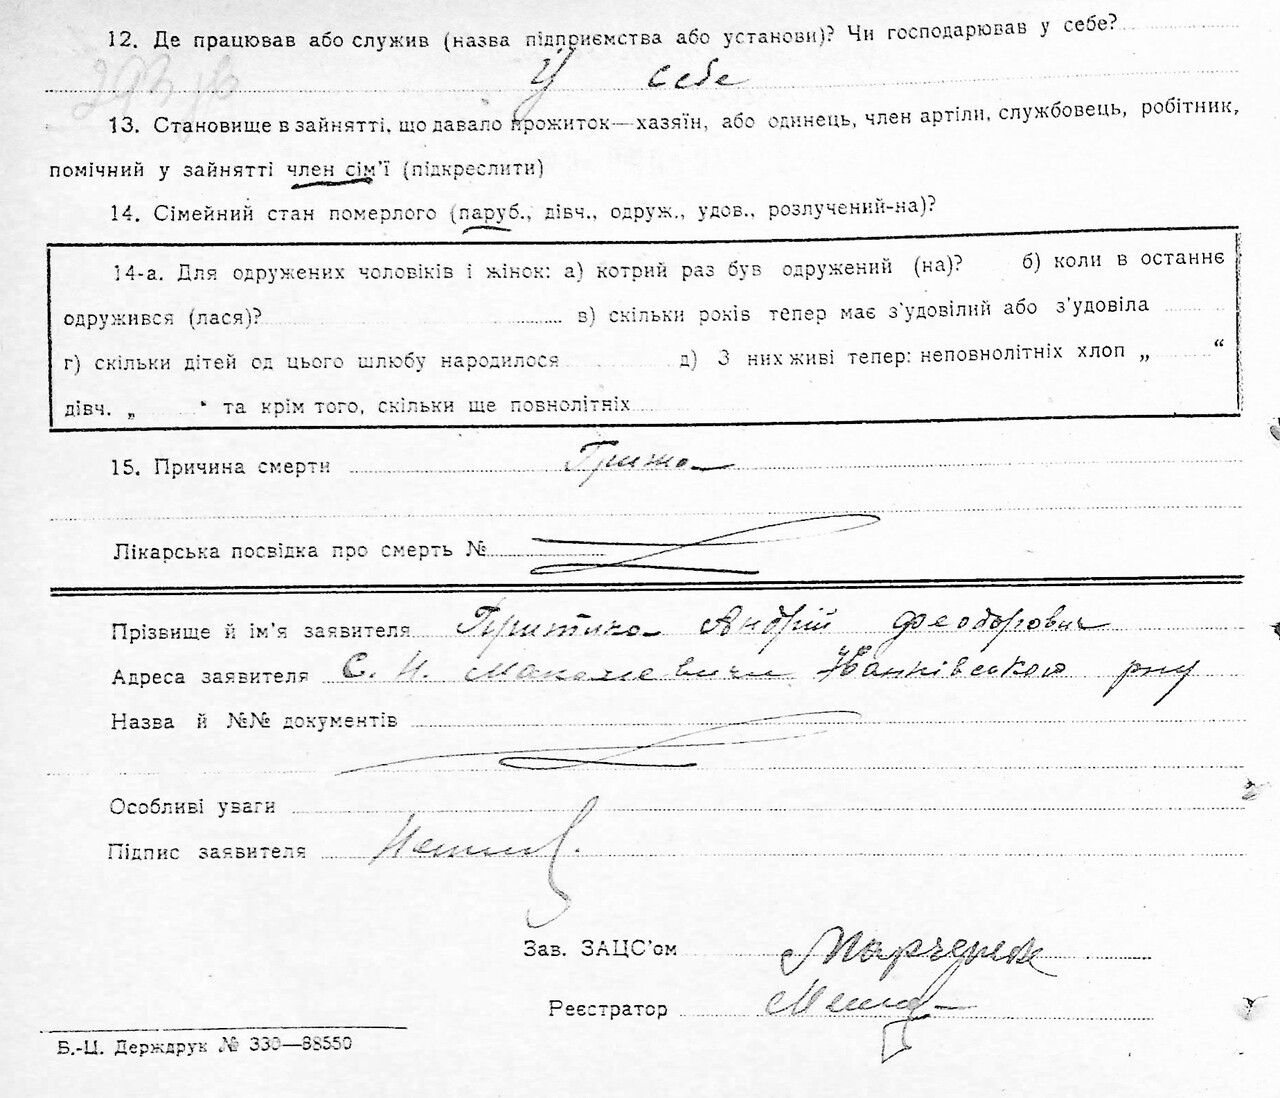 12. Де працював або служив (назва підприємства або установи)? Чи господарював у себе?
У себе
13. Становище в зайнятті, що давало прожиток—хазяїн, або одинець, член артіли, службовець, робітник,
помічний у зайнятті член сім'ї (підкреслити)
14. Сімейний стан померлого (паруб., дівч., одруж., удов., розлучений-на)?
14-а. Для одружених чоловіків і жінок: а) котрий раз був одружений (на)? б) коли в останнє
одружився (лася)? в) скільки років тепер має з'удовілий або з'удовіла
г) скільки дітей од цього шлюбу народилося д) З них живі тепер: неповнолітніх хлоп „ “
дівч. „ “ та крім того, скільки ще повнолітніх
15. Причина смерти Грижа
Лікарська посвідка про смерть №
Прізвище й ім'я заявителя Притика Андрій Феодорович
Адреса заявителя С. Н. Макалевичи Іванківського рну
Назва й №№ документів
Особливі уваги
Підпис заявителя
Зав. ЗАЦС'ом
Реєстратор
Б.-Ц. Держдрук № 330—88550